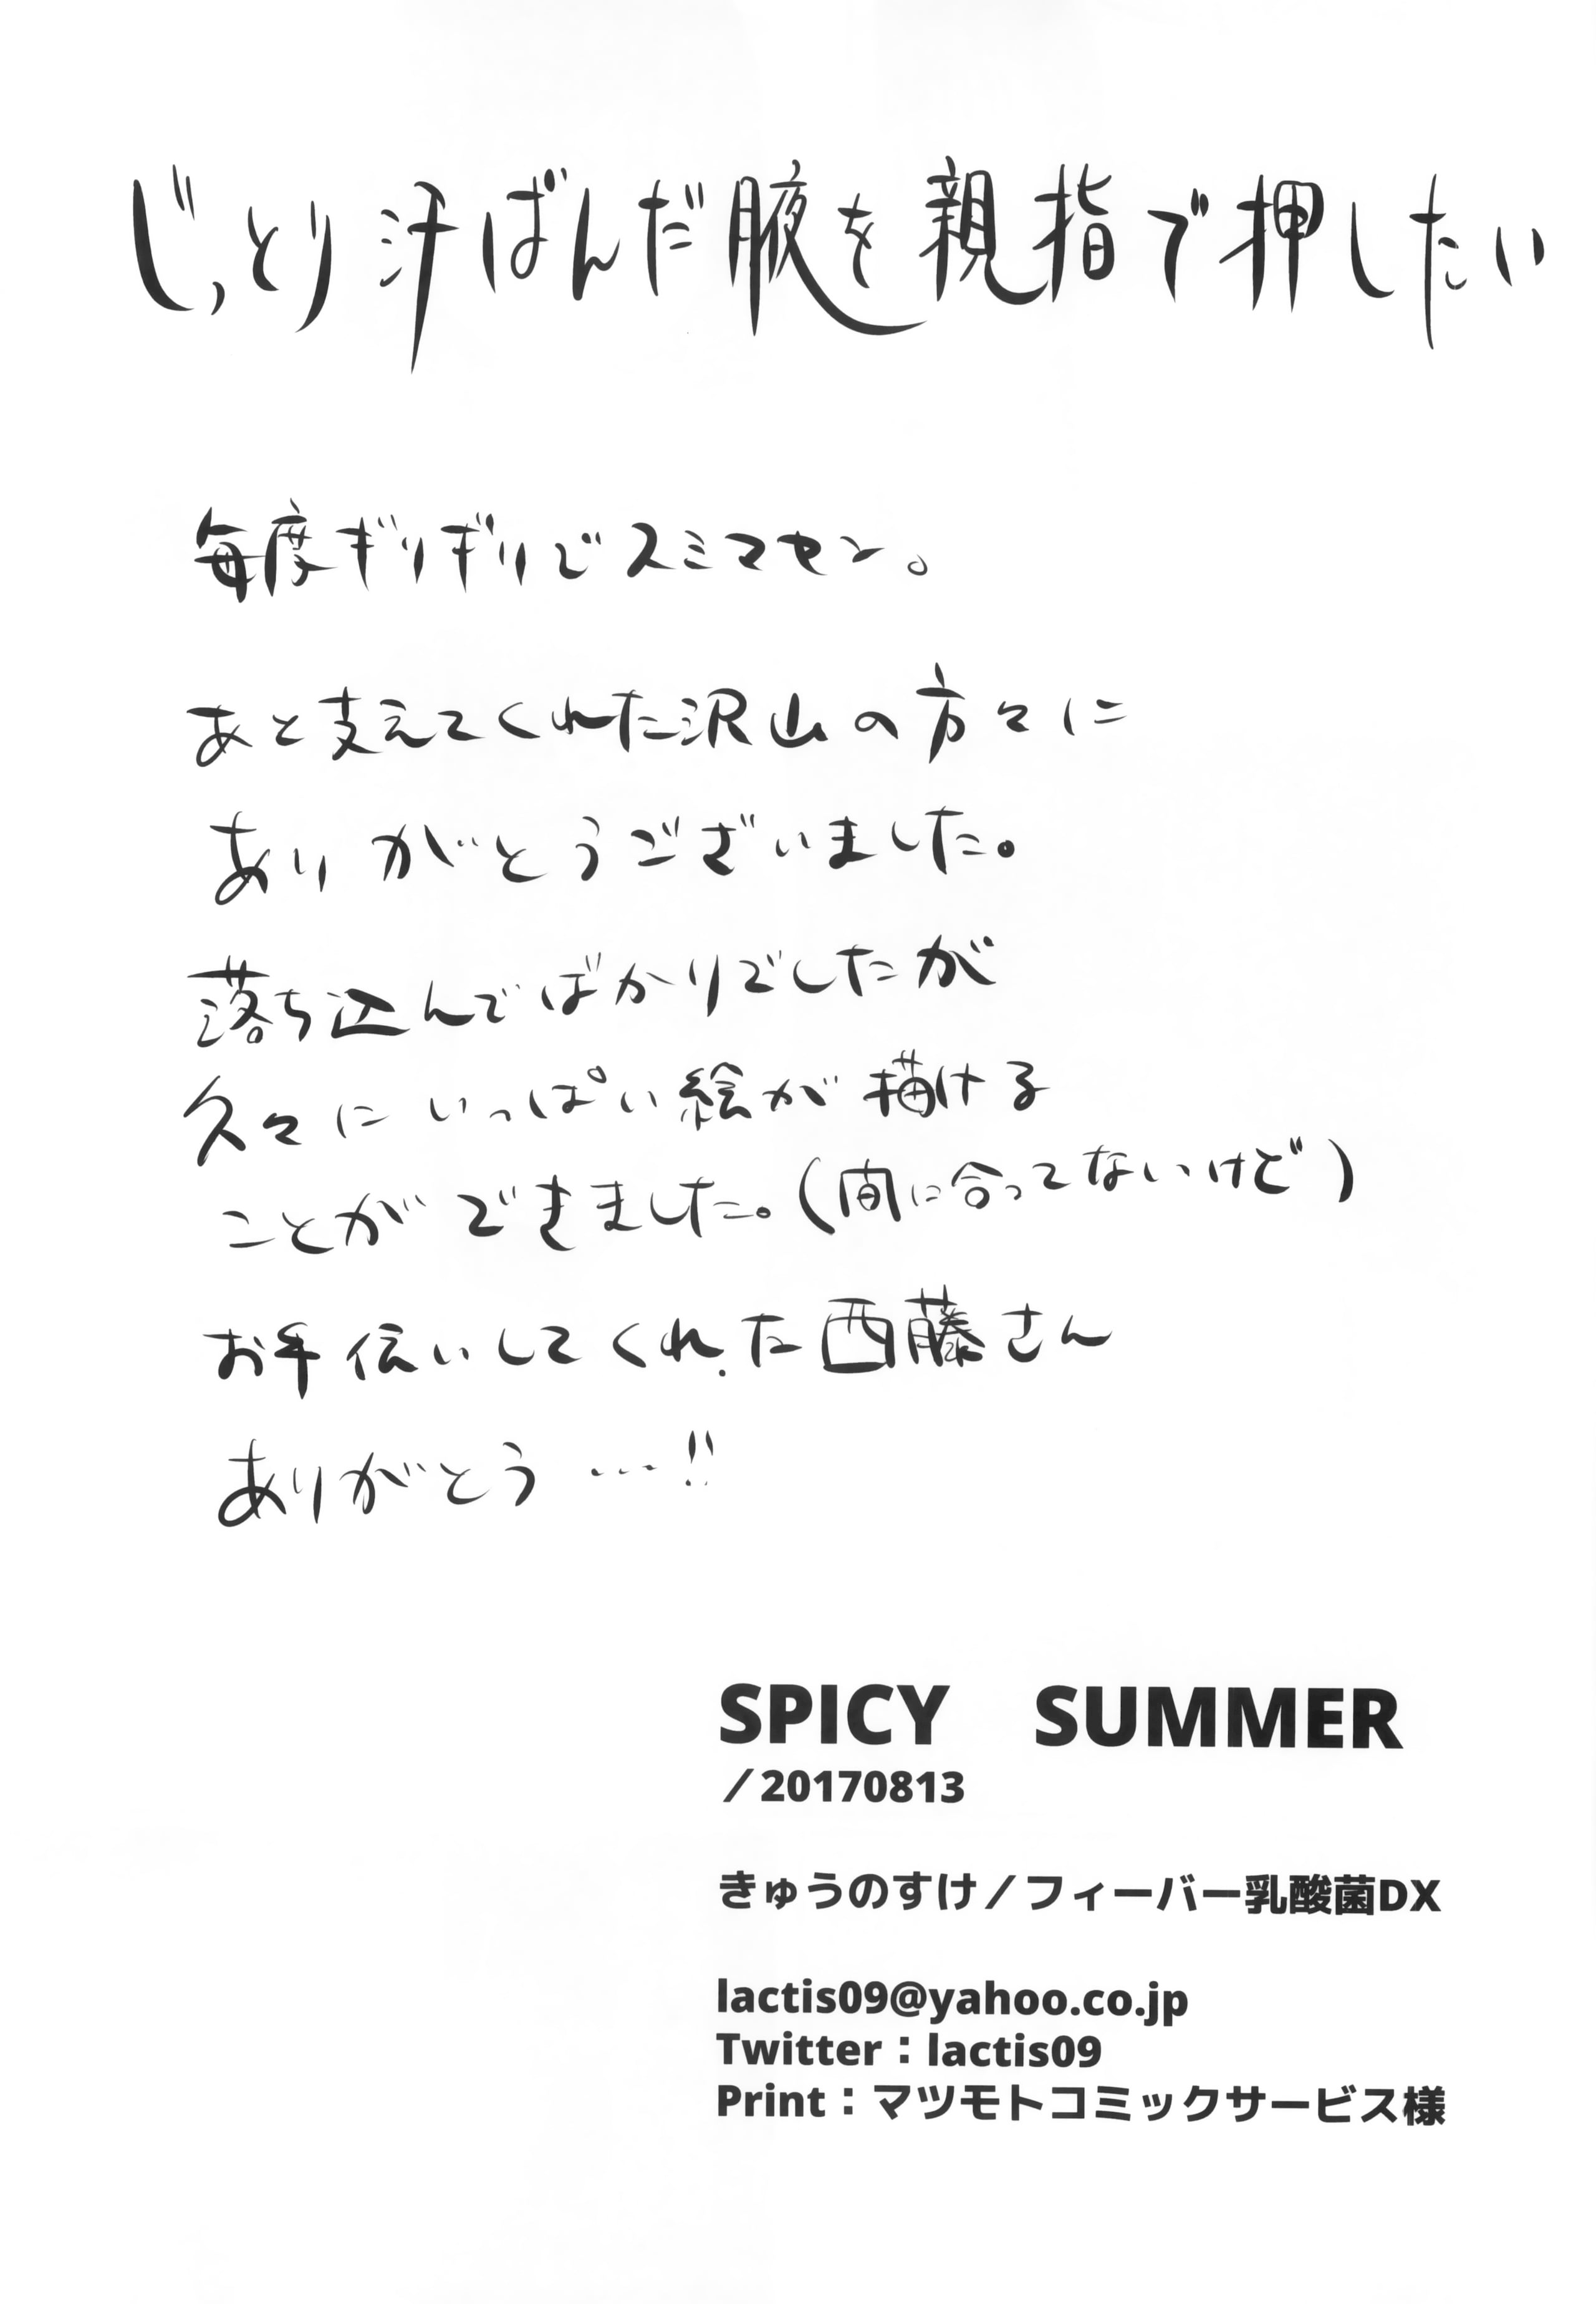 じっとり汁ばんだ腋を親指で押したい
毎度ぎりぎりでスミマセン。
あと支えてくれた沢山の方々に
ありがとうございました。
落ち込んでばかりでしたが
久々にいっぱい絵が描ける
ことができました。(間に合ってないけど)
お手伝いしてくれた西藤さん
ありがとう…!!
SPICY SUMMER
/20170813
きゅうのすけ/フィーバー乳酸菌DX
lactis09@yahoo.co.jp
Twitter：lactis09
Print：マツモトコミックサービス様